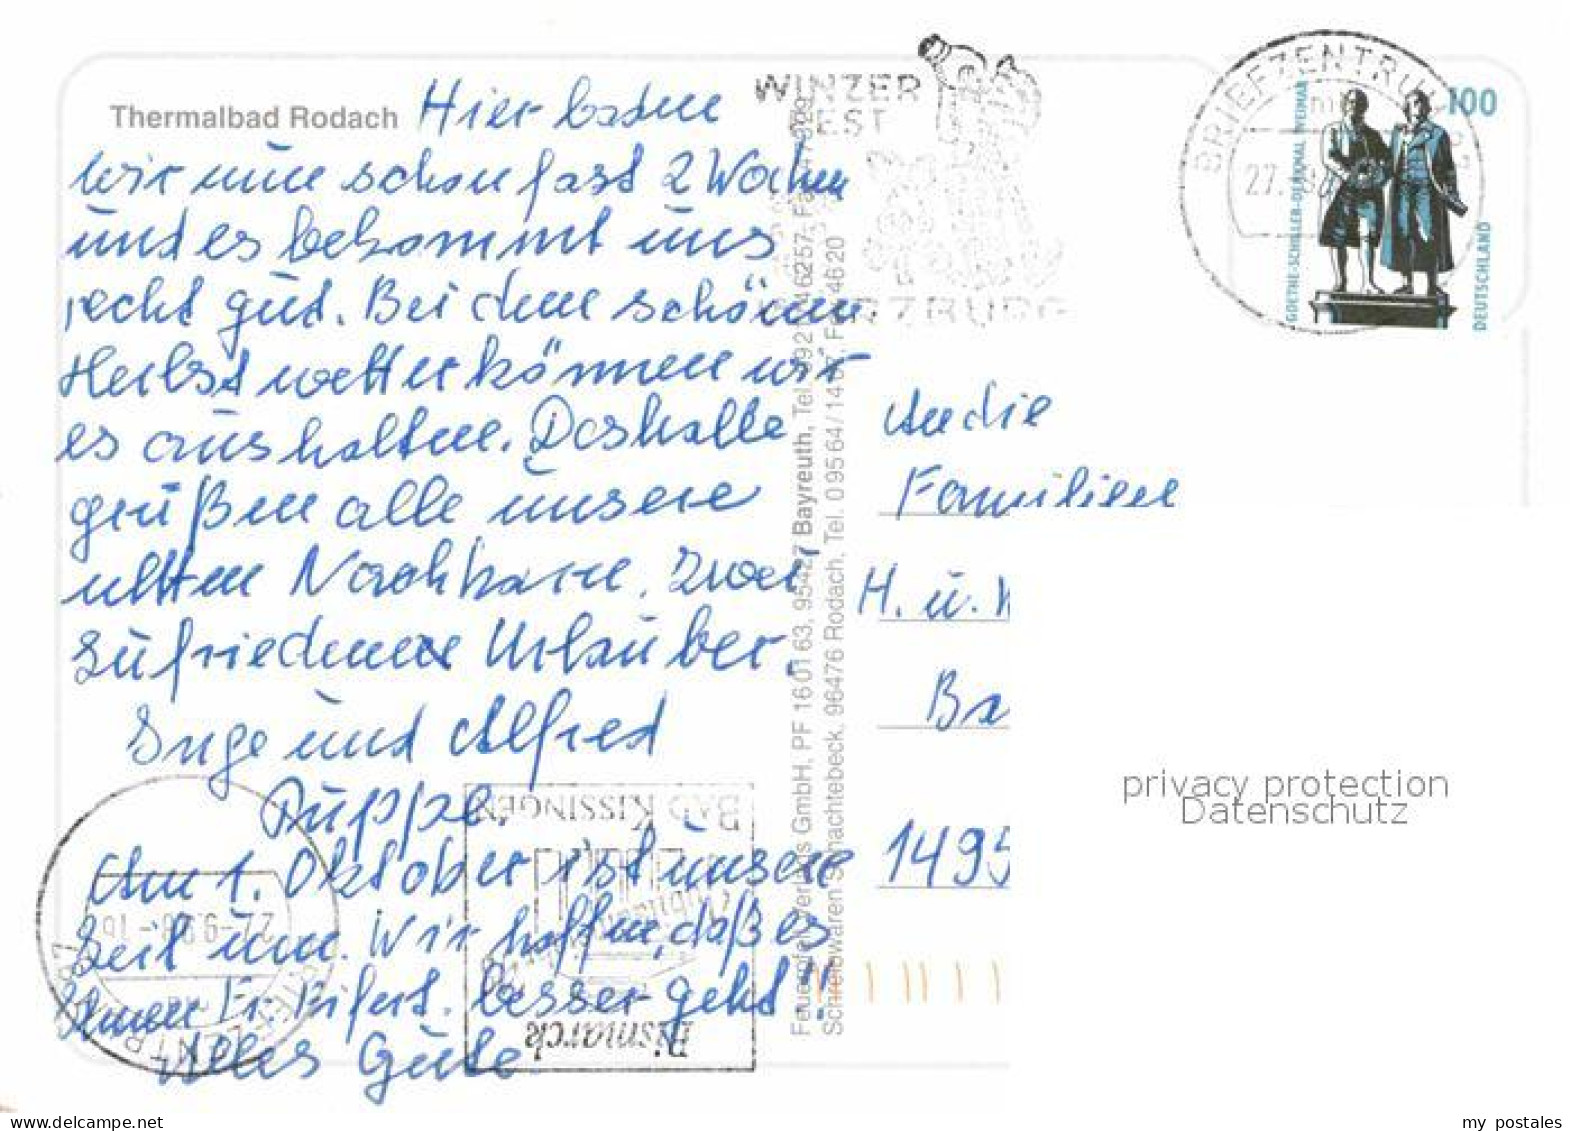 Thermalbad Rodach Hier baden
wir nun schon fast 2 Wochen
und es bekommt uns
recht gut. Bei dem schönen
Herbstwetter können wir
es aushalten. Deshalb
grüßen alle unsere
netten Nachbarn. Zwei
zufriedene Urlauber.
Inge und Alfred
Puppe.
Am 1. Oktober ist unsere
Zeit um. Wir hoffen, daß es
Fr. besser geht!
Alles Gute
WINZER
FEST
WÜRZBURG
BRIEFZENTRUM
27.
100
GOETHE-SCHILLER-DENKMAL WEIMAR
DEUTSCHLAND
An die
Familien
H. u.
Ba
1495
Feuerpfeil Verlags GmbH, PF 160163, 95427 Bayreuth, Tel.
Schreibwaren Schachtebeck, 96476 Rodach, Tel. 09564/1407, Fax 4620
BAD KISSINGEN
Bismarck
27.-9.98-16
BRIEFZENTRUM
privacy protection
Datenschutz
delcampe.net
my_postales